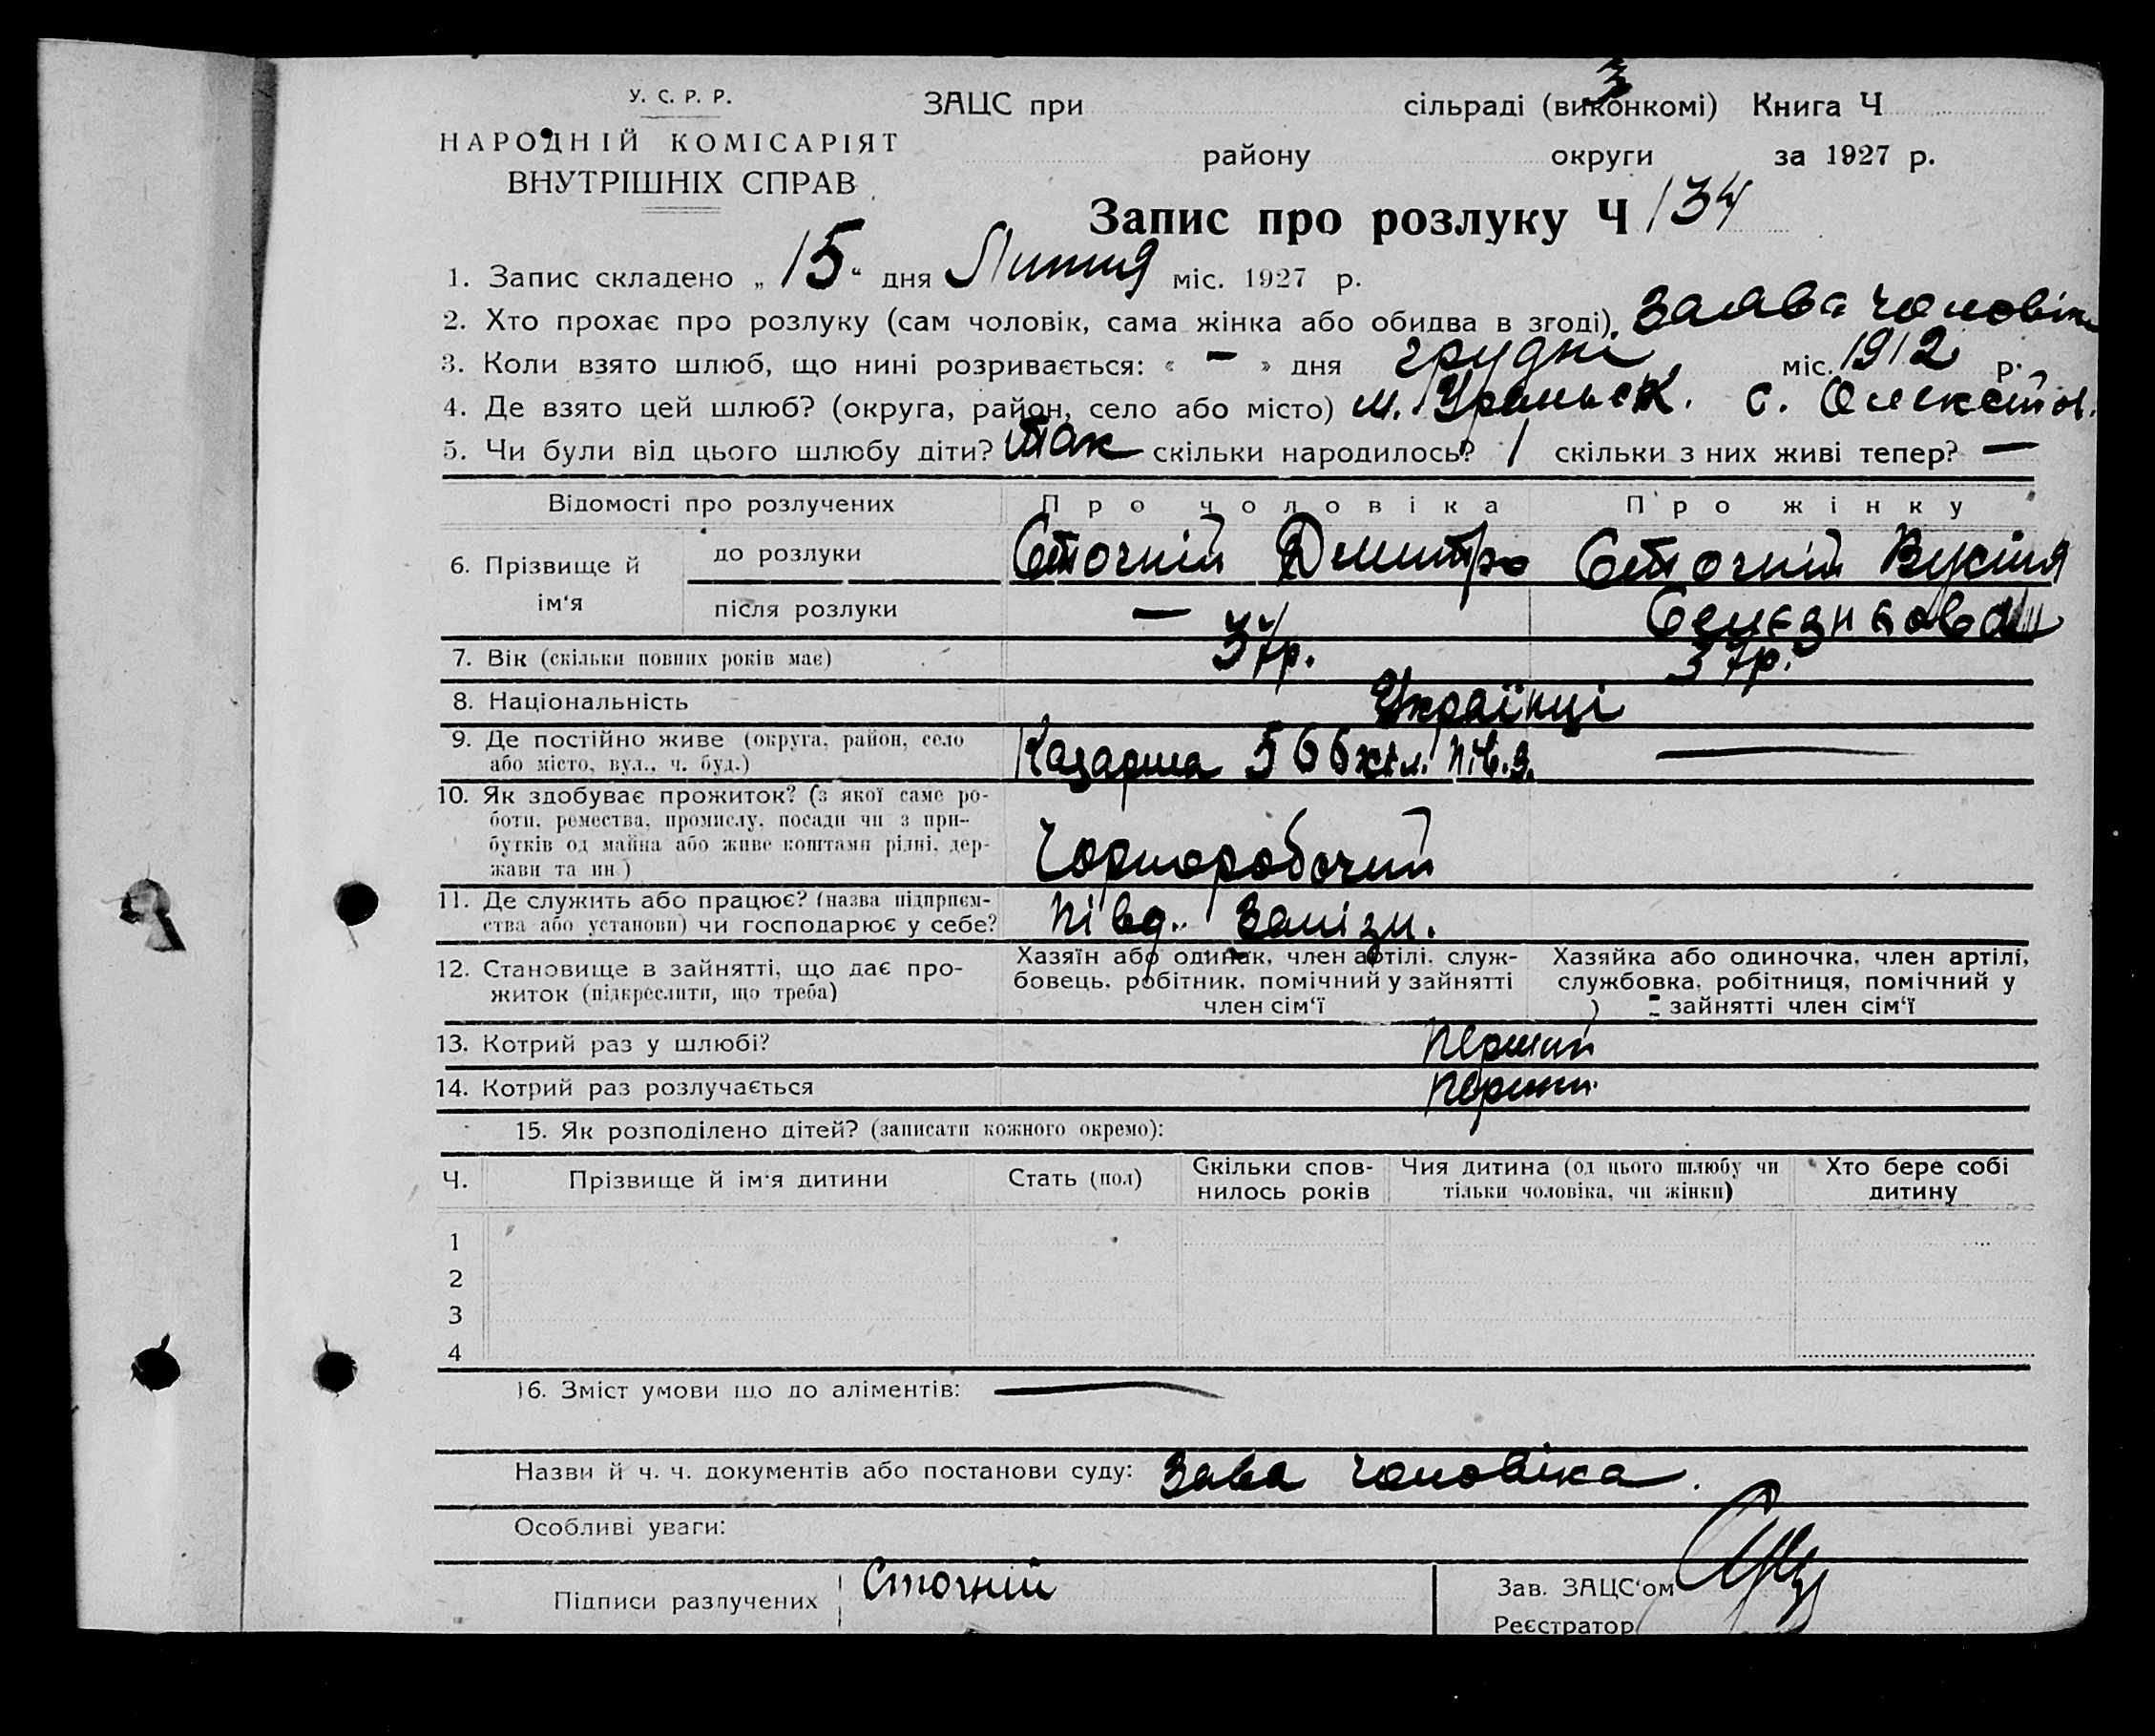 У. С. Р. Р.
НАРОДНІЙ КОМІСАРІЯТ
ВНУТРІШНІХ СПРАВ
ЗАЦС при сільраді (виконкомі) Книга Ч
3
району округи за 1927 р.
Запис про розлуку Ч 134
1. Запис складено „ 15 “ дня Липня міс. 1927 р.
2. Хто прохає про розлуку (сам чоловік, сама жінка або обидва в згоді). Заява чоловіка
3. Коли взято шлюб, що нині розривається: « — » дня грудні міс. 1912 р.
4. Де взято цей шлюб? (округа, район, село або місто) м. Уральск. с.
5. Чи були від цього шлюбу діти? Так скільки народилось? 1 скільки з них живі тепер? —
Відомості про розлучених Про чоловіка Про жінку
6. Прізвище й ім‘я
до розлуки Сточній Дмитро Сточній Вукіля
після розлуки —
7. Вік (скільки повних років має) 37р. 37р.
8. Національність Українці
9. Де постійно живе (округа, район, село або місто, вул., ч. буд.) Казарма 566 кіл. —
10. Як здобуває прожиток? (з якої саме ро-
боти, ремества, промислу, посади чи з при-
бутків од майна або живе коштами рідні, дер-
жави та ин.) Чорноробочий
11. Де служить або працює? (назва підприєм-
ства або установи) чи господарює у себе? Півд. Залізн.
12. Становище в зайнятті, що дає про-
житок (підкреслити, що треба)
Хазяїн або одинак, член артілі, служ-
бовець, робітник, помічний у зайнятті
член сім‘ї
Хазяйка або одиночка, член артілі,
службовка, робітниця, помічний у
зайнятті член сім‘ї
13. Котрий раз у шлюбі? перший
14. Котрий раз розлучається перший
15. Як розподілено дітей? (записати кожного окремо):
Ч. Прізвище й ім‘я дитини Стать (пол) Скільки спов-
нилось років Чия дитина (од цього шлюбу чи
тільки чоловіка, чи жінки) Хто бере собі
дитину
1
2
3
4
16. Зміст умови що до аліментів: —
Назви й ч. ч. документів або постанови суду: Зава чоловіка.
Особливі уваги:
Підписи разлучених Сточній
Зав. ЗАЦС‘ом
Реєстратор